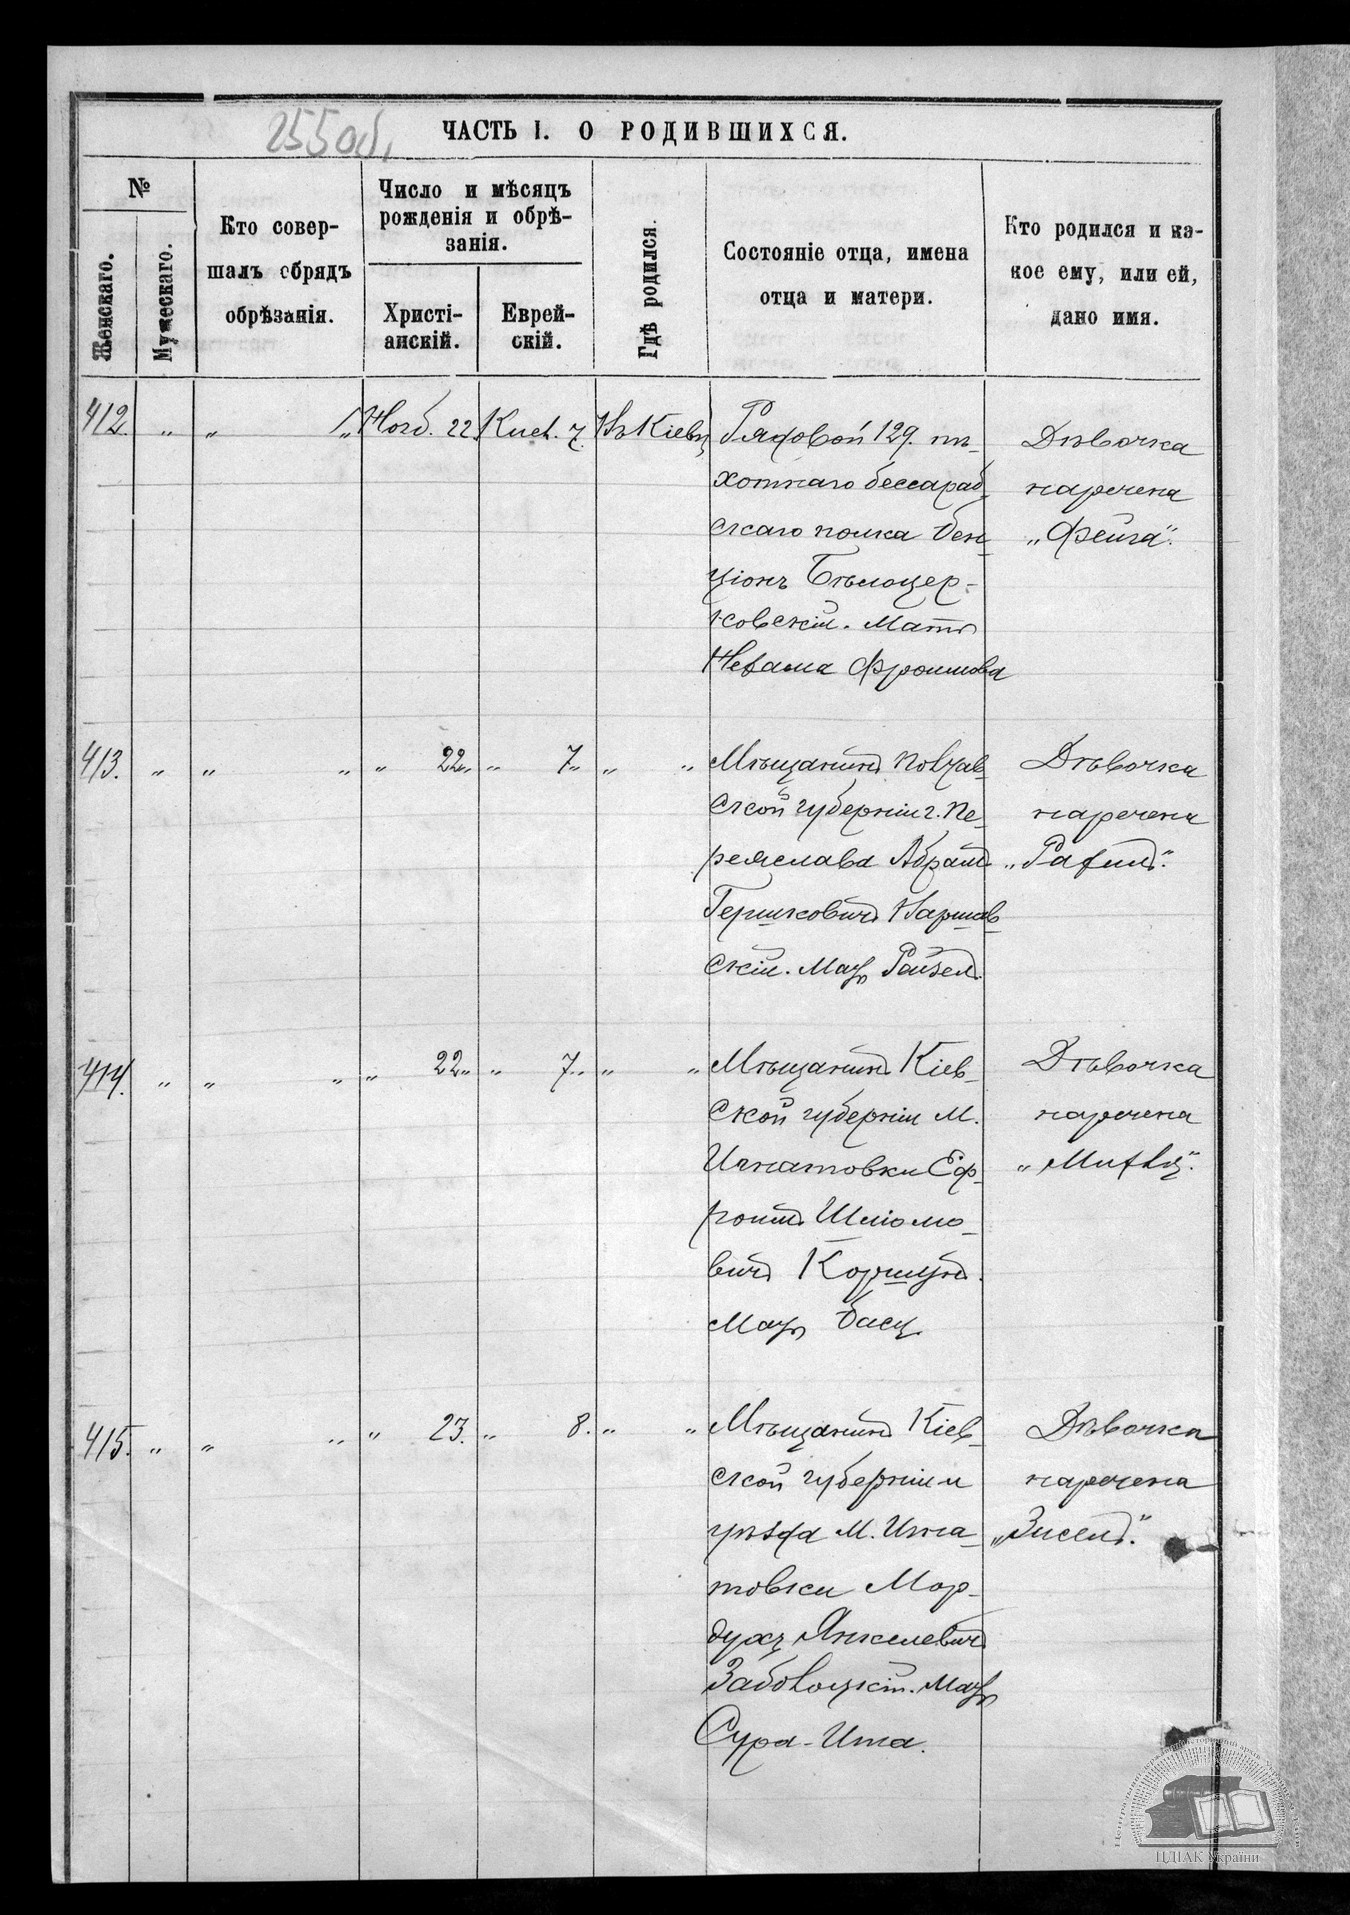 255об.
ЧАСТЬ I. О РОДИВШИХСЯ.
№
Женскаго.
Мужескаго.
Кто совер-
шалъ обрядъ
обрѣзанія.
Число и мѣсяцъ
рожденія и обрѣ-
занія.
Христі-
анскій.
Еврей-
скій.
Гдѣ родился.
Состояніе отца, имена
отца и матери.
Кто родился и ка-
кое ему, или ей,
дано имя.
412. „ „ „ Нояб. 22. Кисл. 7. Въ Кіевѣ
Рядовой 129. пѣ-
хотнаго бессараб-
скаго полка Бен-
ціонъ Бѣлоцер-
ковскій. Мать
Нехама Фроимова
Дѣвочка
наречена
„Фейга".
413. „ „ „ „ 22 „ „ 7 „ „ „
Мѣщанинъ Полтав-
ской губерніи г. Пе-
реяслава Абрамъ
Гершковичъ Варшав-
скій. Мать Рейзел.
Дѣвочка
наречена
„Рахиль".
414. „ „ „ „ 22 „ „ 7 „ „ „
Мѣщанинъ Кіев-
ской губерніи М.
Игнатовки Еф-
роимъ Шліомо-
вичъ Коршунъ.
Мать Бася.
Дѣвочка
наречена
415. „ „ „ „ 23. „ 8. „ „
Мѣщанинъ Кіев-
ской губерніи и
уѣзда М. Игна-
товки Мор-
духъ Янкелевичъ
Мать
Сура-Ита.
Дѣвочка
наречена
„Зисель".
ЦДІАК України